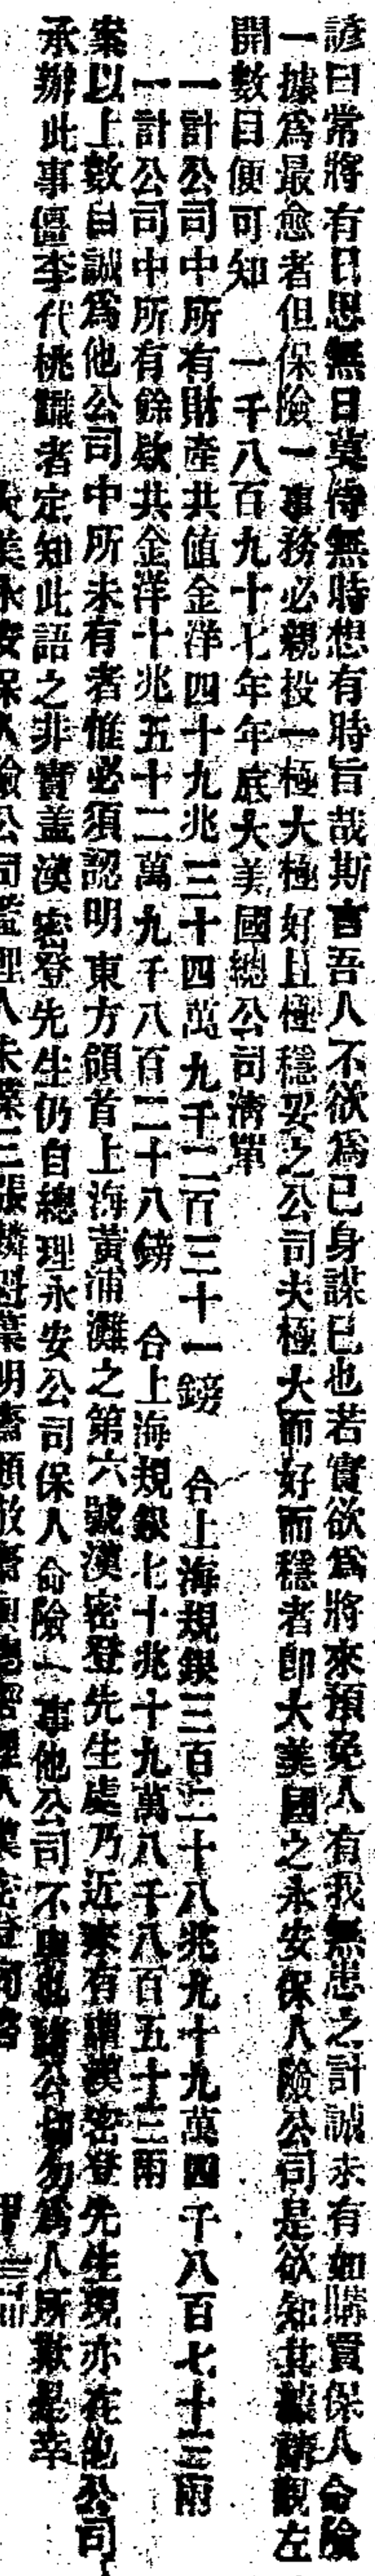 諺曰常將有日思無日莫待無時想有時旨哉斯言吾人不欲爲己身謀已也若實欲爲將來預免人有我無患之計誠未有如購買保人命險
一據爲最愈者但保險一事務必親投一極大極好且極穩妥之公司夫極大而好而穩者即大美國之永安保人險公司是欲知其據請觀左
開數目便可知　一千八百九十七年年底大美國總公司淸單
一計公司中所有財產共値金洋四十九兆三十四萬九千二百三十一鎊　合上海規銀三百二十八兆九十九萬四千八百七十三兩
一計公司中所有餘欵共金洋十兆五十二萬九千八百二十八鎊　合上海規銀七十兆十九萬八千八百五十三兩
案以上數目誠爲他公司中所未有者惟必須認明東方領首上海黃浦灘之第六號漢密登先生處乃近來有謂漢密登先生現亦在他公司
承辦此事僵李代桃識者定知此語之非實蓋漢密登先生仍自總理永安公司保人命險一事他公司不與也諸公切勿爲人所欺是幸
大美永安保人險公司